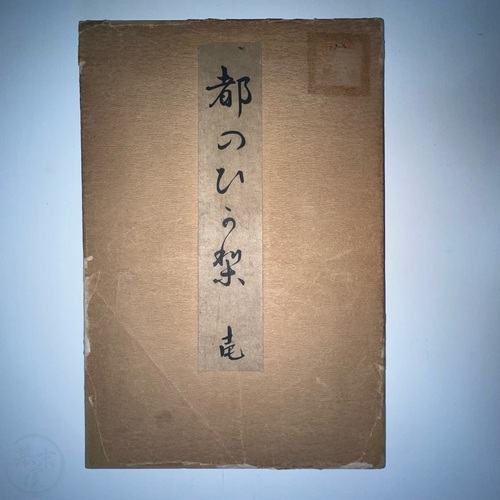 都のひか梨 壱